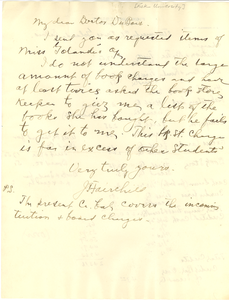 (Fisk University)
My dear Doctor DuBois:
I sent you as requested items of
Miss Yolande's a/c
I do not understand the large
amount of book charges and have
at least twice asked the book store
keeper to give me a list of the
books she has bought, but he fails
to get it to me. This bk st. charge
is far in excess of other students
Very truly yours,
P.S.
The present Cr. Bal. covers the incoming
tuition & board charges.